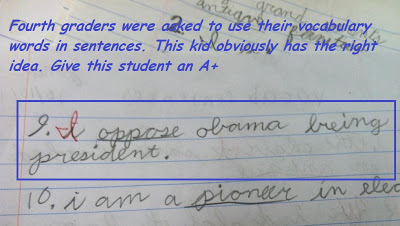 grand
Fourth graders were asked to use their vocabulary
words in sentences. This kid obviously has the right
idea. Give this student an A+
9. I oppose obama breing
president.
10. i am a pioneer in elec